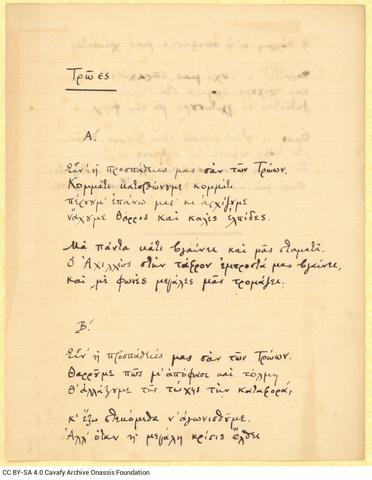 Τρῶες
Α.΄
Εἶν' ἡ προσπάθειές μας σὰν τῶν Τρώων.
Κομμάτι κατορθώνουμε κομμάτι
πέρνουμ' ἐπάνω μας· κι ἀρχίζουμε
νἄχουμε θάρρος καὶ καλὲς ἐλπίδες.
Μὰ πάντα κάτι βγαίνει καὶ μᾶς σταματᾶ.
Ὁ Ἀχιλλεὺς στὴν τάφρον ἐμπροστά μας βγαίνει,
καὶ μὲ φωνὲς μεγάλες μᾶς τρομάζει.
Β.΄
Εἶν' ἡ προσπάθειές μας σὰν τῶν Τρώων.
Θαρροῦμε πῶς μ' ἀπόφασι καὶ τόλμη
θ' ἀλλάξουμε τῆς τύχης τὴν καταφορά,
κ' ἔξω στεκόμεθα ν' ἀγωνισθοῦμε.
Ἀλλ' ὅταν ἡ μεγάλη κρίσις ἔλθει
CC BY-SA 4.0 Cavafy Archive Onassis Foundation